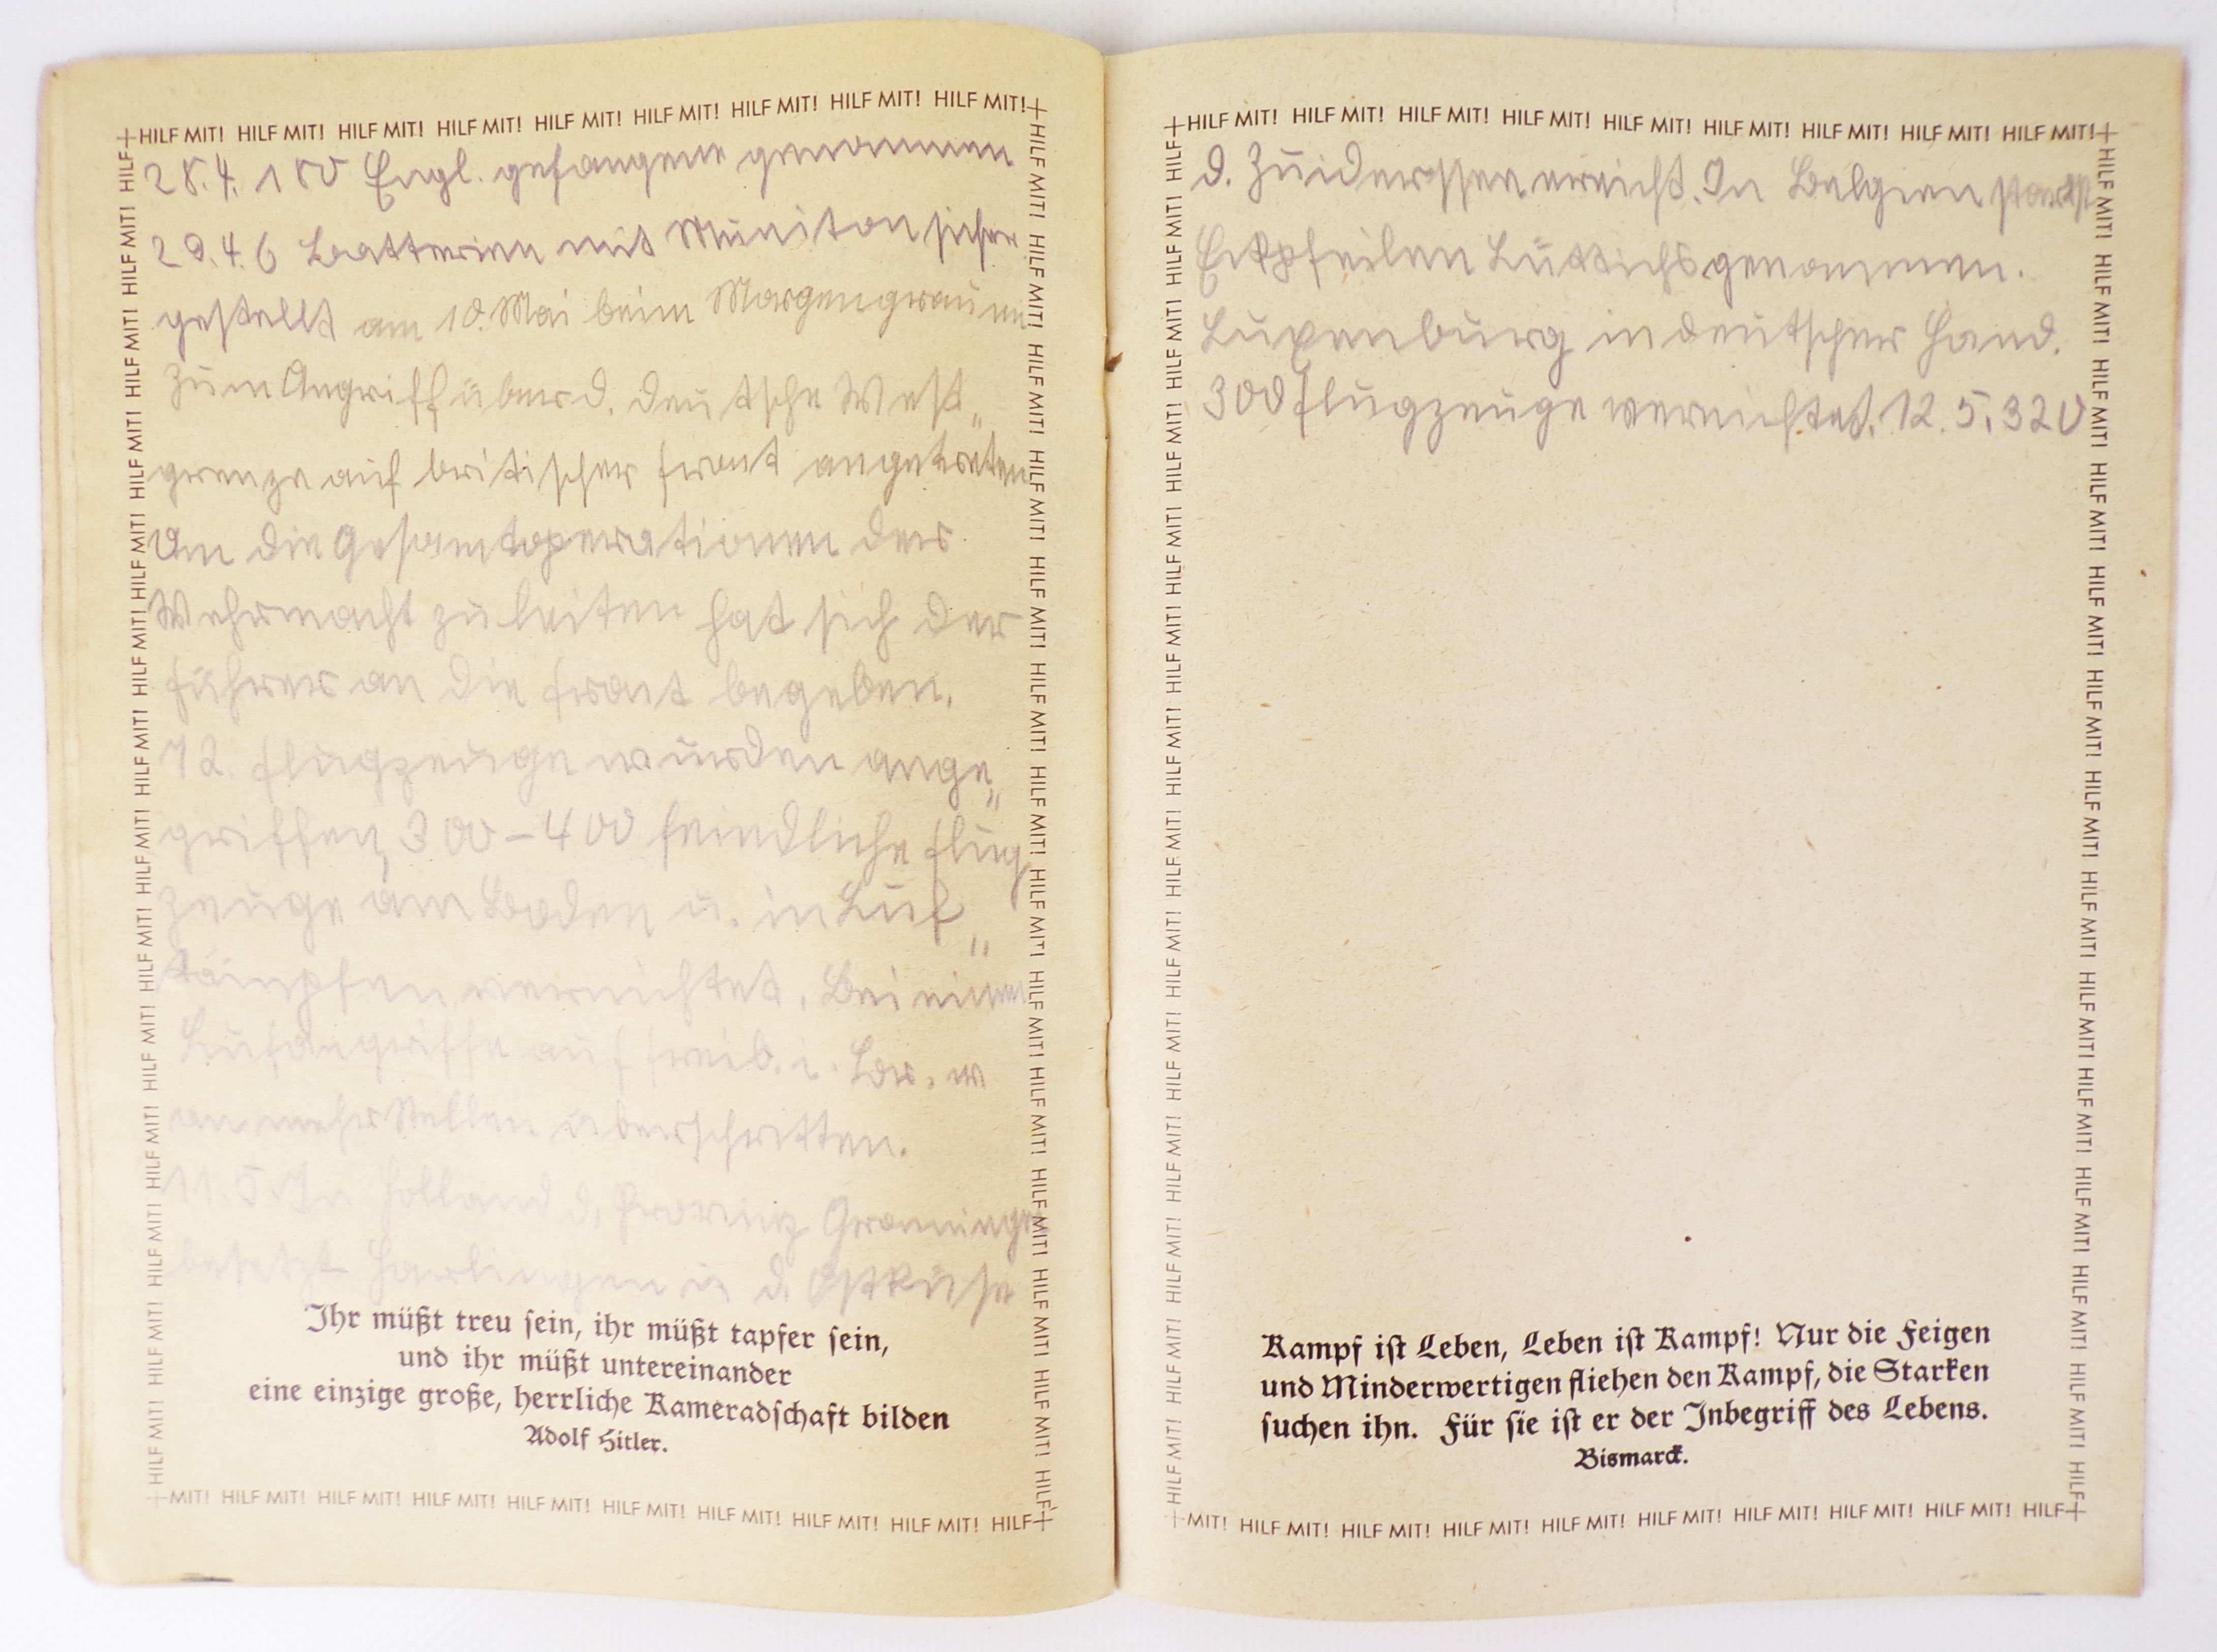 +HILF MIT! HILF MIT! HILF MIT! HILF MIT! HILF MIT! HILF MIT! HILF MIT! HILF MIT! HILF MIT!+
28.4. 100 Engl. gefangene genommen
29.4. 6 Batterien mit Muniton sicher
gestellt am 10. Mai beim Morgengrauen
zum Angriff über d. deutsche West„
grenze auf britischer Front angetreten
Um die Gesamtoperationen der
Wehrmacht zu leiten hat sich der
Führer an die Front begeben.
72. Flugzeuge wurden ange„
griffen, 300–400 feindliche Flug
zeuge am Boden u. in Luf„
kämpfen vernichtet. Bei einem
Lufangriffe auf Freib. i. Br. w
an mehr Stellen überschritten.
11.5. In Holland d. Provinz Groningen
besetzt Harlingen u d. Ostküse
Ihr müßt treu sein, ihr müßt tapfer sein,
und ihr müßt untereinander
eine einzige große, herrliche Kameradschaft bilden
Adolf Hitler.
+MIT! HILF MIT! HILF MIT! HILF MIT! HILF MIT! HILF MIT! HILF MIT! HILF MIT! HILF MIT! HILF+
+HILF MIT! HILF MIT! HILF MIT! HILF MIT! HILF MIT! HILF MIT! HILF MIT! HILF MIT! HILF MIT!+
d. Zuidersseen erreicht. In Belgien
Lüttichs genommen.
Luxenburg in deutscher Hand.
300 Flugzeuge vernichtet. 12.5. 320
Kampf ist Leben, Leben ist Kampf! Nur die Feigen
und Minderwertigen fliehen den Kampf, die Starken
suchen ihn. Für sie ist er der Inbegriff des Lebens.
Bismarck.
+MIT! HILF MIT! HILF MIT! HILF MIT! HILF MIT! HILF MIT! HILF MIT! HILF MIT! HILF+